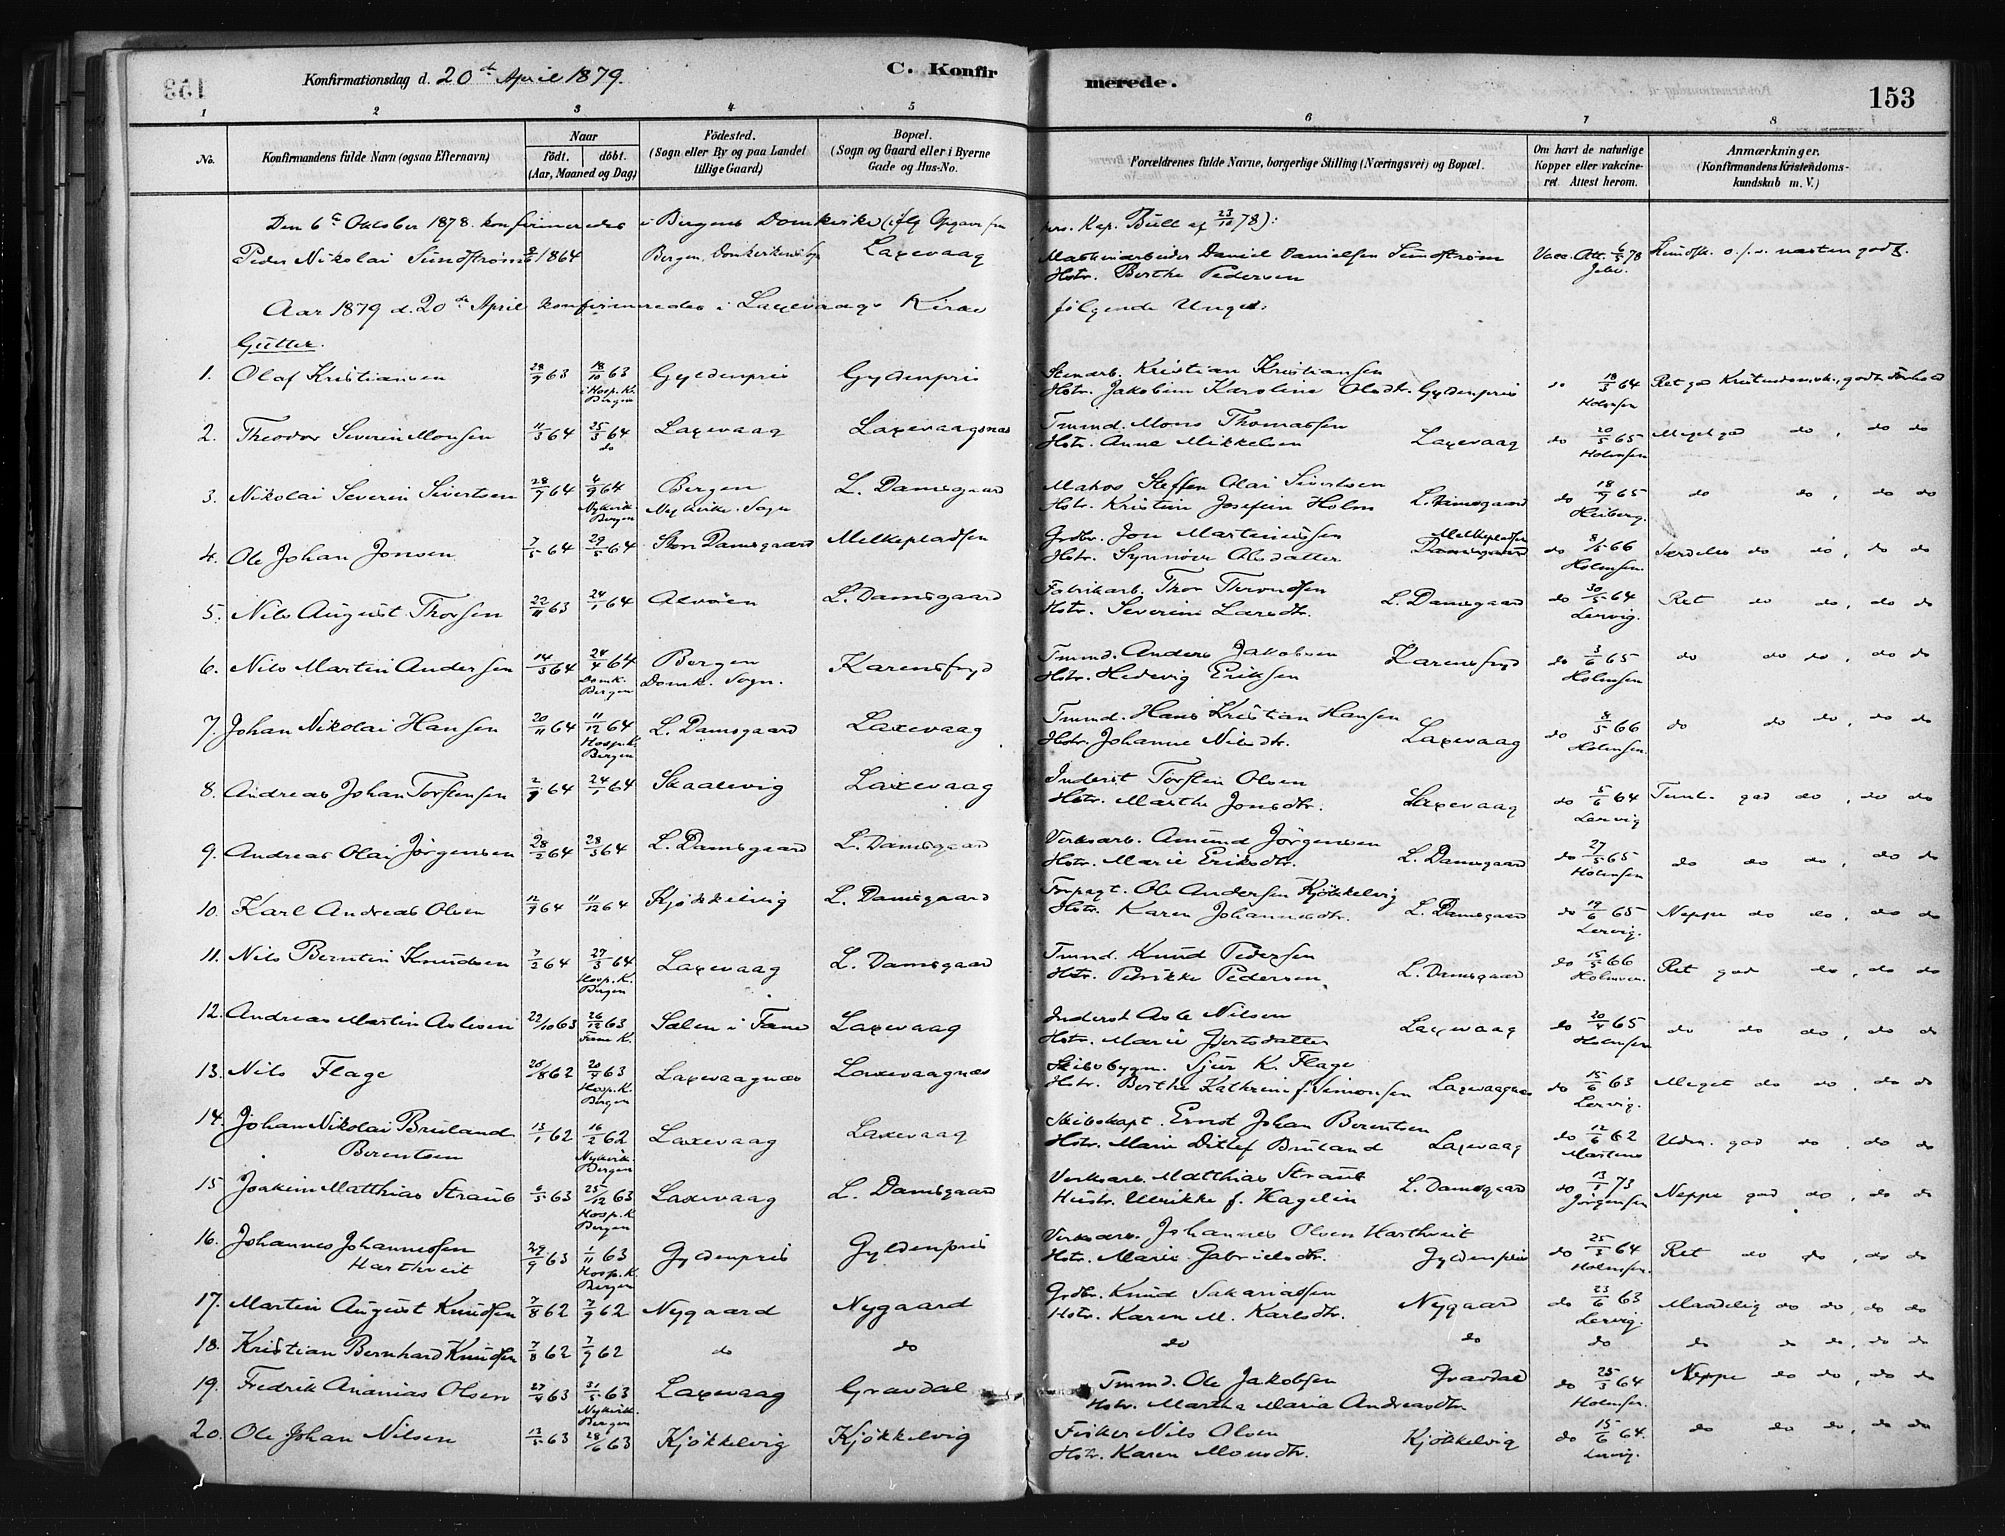 Konfirmationsdag d. 20de April 1879.
C. Konfirmerede.
153
1 2 3 4 5 6 7 8
No.
Konfirmandens fulde Navn (ogsaa Efternavn)
Naar
födt. döbt.
(Aar, Maaned og Dag)
Födested.
(Sogn eller By og paa Landet tillige Gaard)
Bopæl.
(Sogn og Gaard eller i Byerne Gade og Hus-No.
Forældrenes fulde Navne, borgerlige Stilling (Næringsvei) og Bopæl.
Om havt de naturlige Kopper eller vakcineret Attest herom.
Anmærkninger.
(Konfirmandens Kristendomskundskab m. V.)
Den 6te Oktober 1878 konfirmeredes i Bergens Domkirke (iflg Opgave fra
pers. Kap. Bull af 23/10 78):
Peder Nikolai Sundstrøm 1864 Bergen, Domkirkens S. Laxevaag Maskinarbeider Daniel Danielsen Sundstrøm Vacc. Att. 6/5 78 Kundsk. o. s. v. næsten godt
Hstr. Berthe Pedersen
Aar 1879 d. 20de April konfirmeredes i Laxevaags Kirke følgende Unge:
Gutter.
1. Olaf Kristiansen 28/9 63 18/10 63 Gyldenpris Gyldenpris Stenarb. Kristian Kristiansen
i Hosp. K. Bergen Hstr. Jakobine Karoline Olsdtr. Gyldenpris do 18/3 64 Ret god Kristendomsk., godt Forhold
Holmsen
2. Theodor Severin Monsen 11/3 64 25/3 64 Laxevaag Laxevaagsnæs Tmmd. Mons Thomassen
do Hstr. Anna Mikkelsen Laxevaag do 20/5 65 Meget god do, do do
Holmsen
3. Nikolai Severin Sivertsen 28/7 64 4/9 64 Bergen L. Damsgaard Matros Steffen Olai Sivertsen
Nykirk. Bergen Nykirke. Sogn Hstr. Kristine Josefine Holm L. Damsgaard do 18/9 65 do do, do do
Heiberg.
4. Ole Johan Jonsen 7/5 64 29/5 64 Store Damsgaard Melkepladsen Grdbr. Jon Martinussen Melkepladsen
Hstr. Synnøve Olsdatter Damsgaard do 8/5 66 Særdeles do do, do do
Holmsen.
5. Nils August Thorsen 22/11 63 24/1 64 Alvøen L. Damsgaard Fabrikarb. Thor Throndsen
Hstr. Severine Larsdtr. L. Damsgaard do 30/5 64 Ret do do, do do
Lervig.
6. Nils Martin Andersen 14/3 64 24/4 64 Bergen Karensfryd Tmmd. Anders Jakobsen
Domk. Bergen Domk. Sogn. Hstr. Hedevig Eriksen Karensfryd do 3/6 65 do do do, do do
Holmsen
7. Johan Nikolai Hansen 20/11 64 11/12 64 L. Damsgaard Laxevaag Tmmd. Hans Kristian Hansen
Hosp. K. Bergen Hstr. Johanne Nilsdtr. Laxevaag do 8/5 66 do do do, do do
Holmsen.
8. Andreas Johan Torstensen 64 24/1 64 Skaalevig Laxevaag Inderst Torsten Olsen
Hstr. Marthe Jonsdtr. Laxevaag do 5/6 64 god do, do do
Lervig
9. Andreas Olai Jørgensen 28/2 64 28/3 64 L. Damsgaard L. Damsgaard Verksarb. Amund Jørgensen
Hstr. Marie Eriksdtr. L. Damsgaard do 27/5 65 do do do, do do
Holmsen
10. Karl Andreas Olsen 12/9 64 11/12 64 Kjøkkelvig L. Damsgaard Forpagt. Ole Andersen Kjøkkelvig
Hstr. Karen Johannesdtr. L. Damsgaard do 19/6 65 Neppe do do, do do
Lervig.
11. Nils Berntin Knudsen 7/2 64 27/3 64 Laxevaag L. Damsgaard Tmmd. Knud Pedersen
Hosp. K. Bergen Hstr. Pedrikke Pedersen. L. Damsgaard do 15/5 66 Ret god do, do do
Holmsen.
12. Andreas Martin Aslesen 22/10 63 26/12 63 Sælen i Fane Laxevaag Inderst Asle Nilsen
Fane K. Hstr. Marie Gjertsdatter Laxevaag do 20/4 65 do do do, do do
Holmsen
13. Nils Flage 26/8 62 20/9 63 Laxevaagnæs Laxevaagnæs Skibsbygm. Sjur K. Flage
Hosp. K. Bergen Hstr. Berthe Kathrine f. Simonsen Laxevaagnæs do 15/6 63 Meget do do, do do
Lervig.
14. Johan Nikolai Bruland Berentsen 13/1 62 16/2 62 Laxevaag Laxevaag Skibskapt. Ernst Johan Berentsen
Nykirk. Bergen Hstr. Marie Ditlef Bruland Laxevaag do 12/6 62 Udm. god do, do do
Martens
15 Joakim Matthias Straub 2/5 63 25/12 63 Laxevaag L. Damsgaard Verksarb. Matthias Straub
Hosp. K. Bergen Hustr. Ulrikke f. Hagelin L. Damsgaard do 13/1 73 Neppe god do, do do
Jørgensen
16. Johannes Johannessen Harthveit 27/9 63 1/11 63 Gyldenpris Gyldenpris Verksarb. Johannes Olsen Harthveit
Hosp. K. Bergen Hstr. Marie Gabrielsdtr. Gyldenpris do 25/3 64 Ret do do, do do
Holmsen.
17. Martin August Knudsen 7/8 62 7/9 62 Nygaard Nygaard Grdbr. Knud Sakariassen
Hstr. Karen M. Karlsdtr. Nygaard do 23/6 63 Maadelig do do, do do
Lervig.
18. Kristian Bernhard Knudsen 7/8 62 7/9 62 do do do do do do do do, do do
19. Fredrik Ananias Olsen 27/4 63 31/5 63 Laxevaag Gravdal Tmmd. Ole Jakobsen Gravdal
Nykirk. Bergen Hstr. Martha Maria Andreasdtr. do 25/3 64 Neppe do do, do do
Holmsen.
20. Ole Johan Nilsen 13/5 63 28/6 63 Kjøkkelvig Kjøkkelvig Fisker Nils Olsen
Hstr. Karen Monsdtr. Kjøkkelvig do 15/6 64. do do, do do
Lervig.